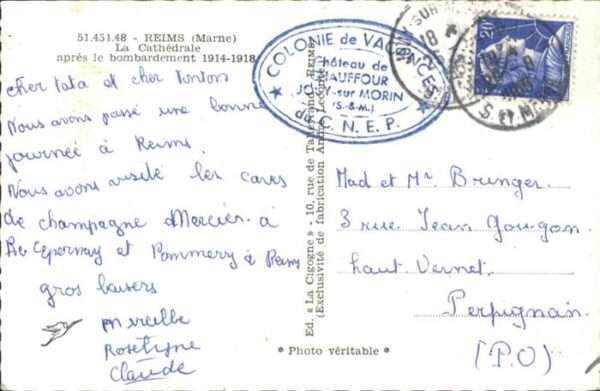 51.451.48 - REIMS (Marne)
La Cathédrale
après le bombardement 1914-1918
cher tata et cher tonton
Nous avons passé une bonne
journée à Reims.
Nous avons visité les caves
de champagne Mercier à
Epernay et Pommery à Reims
gros baisers
Mireille
Roselyne
Claude
Ed. « La Cigogne » - 10, rue de Talleyrand - REIMS
(Exclusivité de fabrication André Leconte)
* Photo véritable *
COLONIE de VACANCES
Château de
CHAUFFOUR
JOUY-sur MORIN
(S.-&-M.)
du C.N.E.P.
20F
Mad et Mr. Bringer.
3 rue Jean Goujon.
haut Vernet.
Perpignan
(P.O)